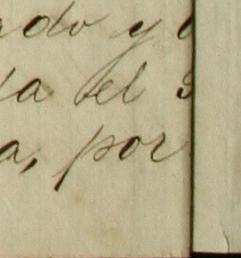 ado y
la el
a, por